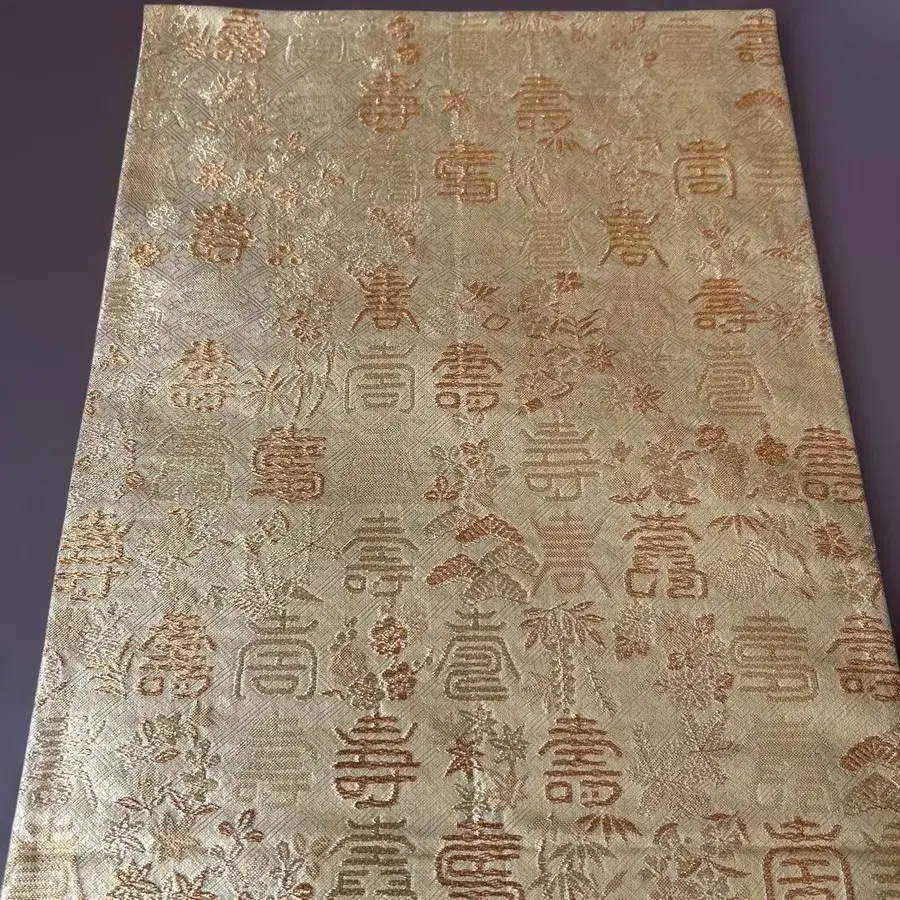 壽 壽 壽 壽 壽
壽 壽
壽 壽 壽 壽
壽 壽 壽
壽 壽
壽 壽 壽 壽
壽 壽 壽 壽
壽 壽 壽 壽
壽 壽 壽 壽 壽
壽 壽 壽 壽
壽 壽 壽